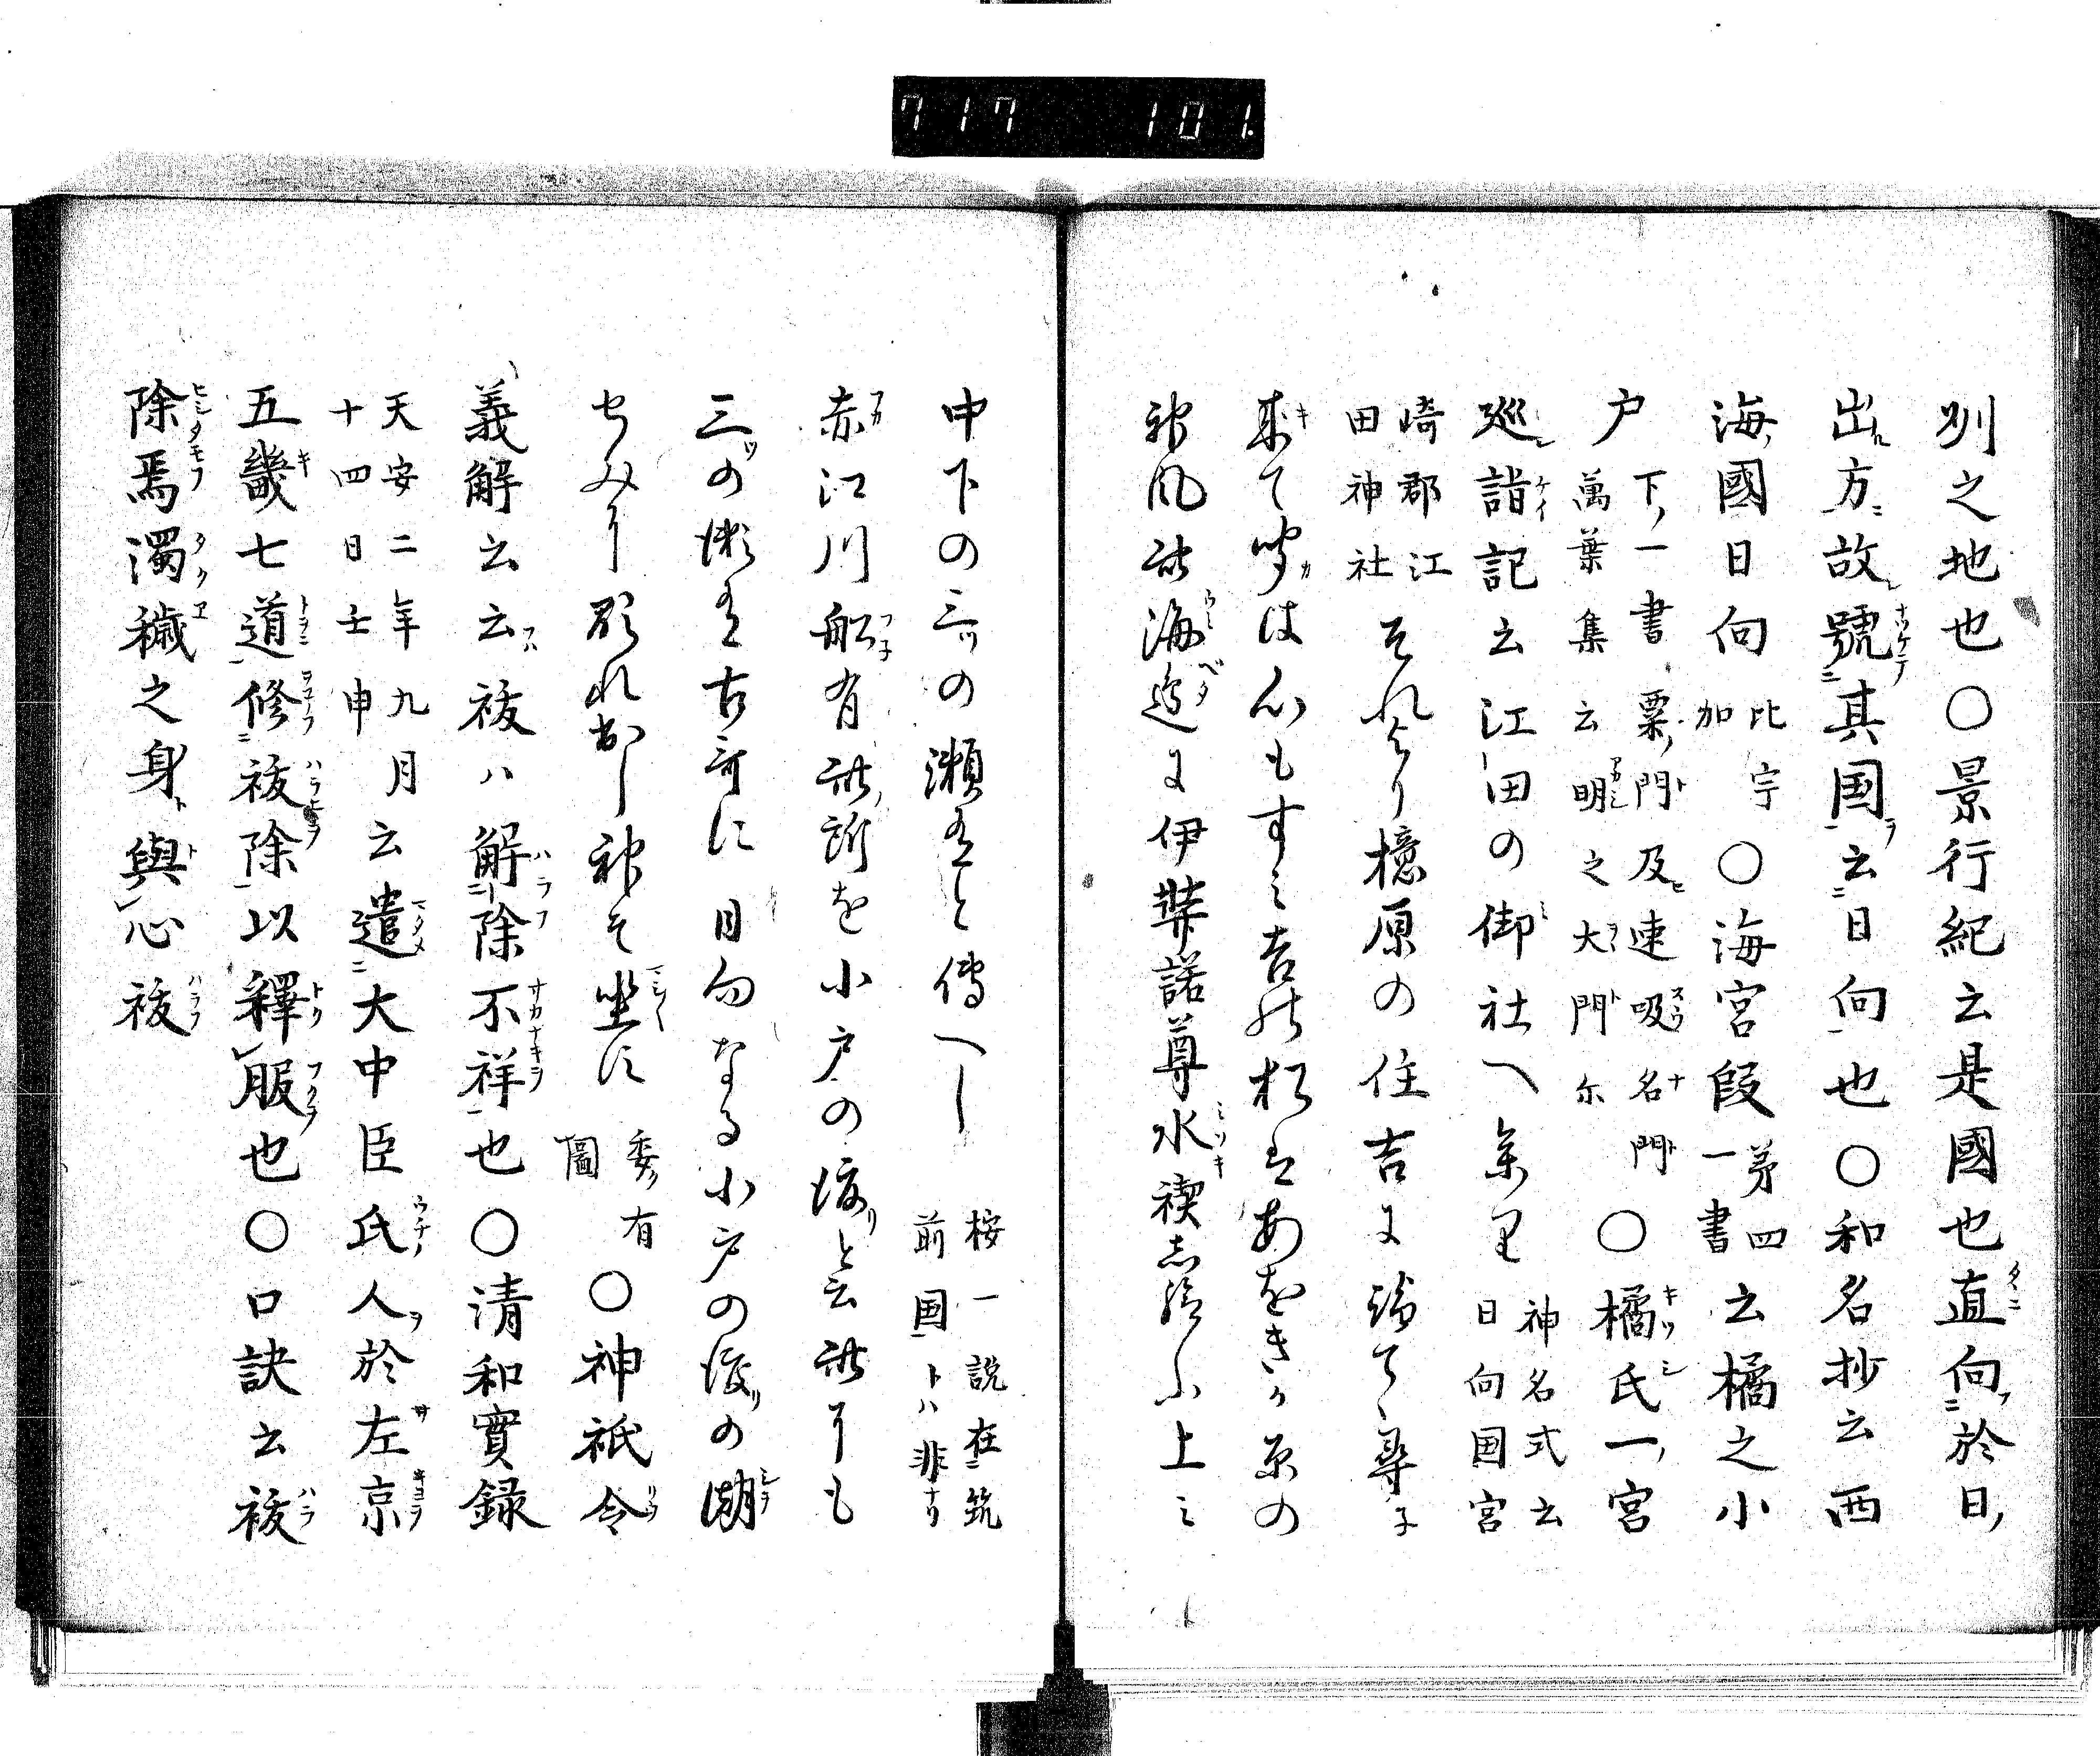 717 101.
別之地也〇景行紀云是國也直向於日
出方故號其国云日向也〇和名抄云西
海國日向
比宇
加
〇海宮段
第四
一書
云橘之小
戸
下一書粟門及速吸名門
萬葉集云明之大門尓
〇橘氏一宮
巡詣記云江田の御社へ参里
神名式云
日向国宮
崎郡江
田神社
それより檍原の住吉に詣て、尋子
来て安は心もすミ吉の松をあをきか原の
神風此海邉に伊弉諾尊水禊志給ふ上ミ
中下の三ツの瀬有と傳へし
按一説在筑
前国トハ非ナリ
赤江川船有此所を小戸の渡リと云此リも
三ツの瀬有古哥に日向なる小戸の渡リの潮
せみり顕れ出し神そ坐に
委有
圖
〇神祇令
義解云云祓ハ解除不祥也〇清和實録
天安二年九月
十四日壬申
云遣大中臣氏人於左京
五畿七道修祓除以釋服也〇口訣云祓
除焉濁穢之身與心祓